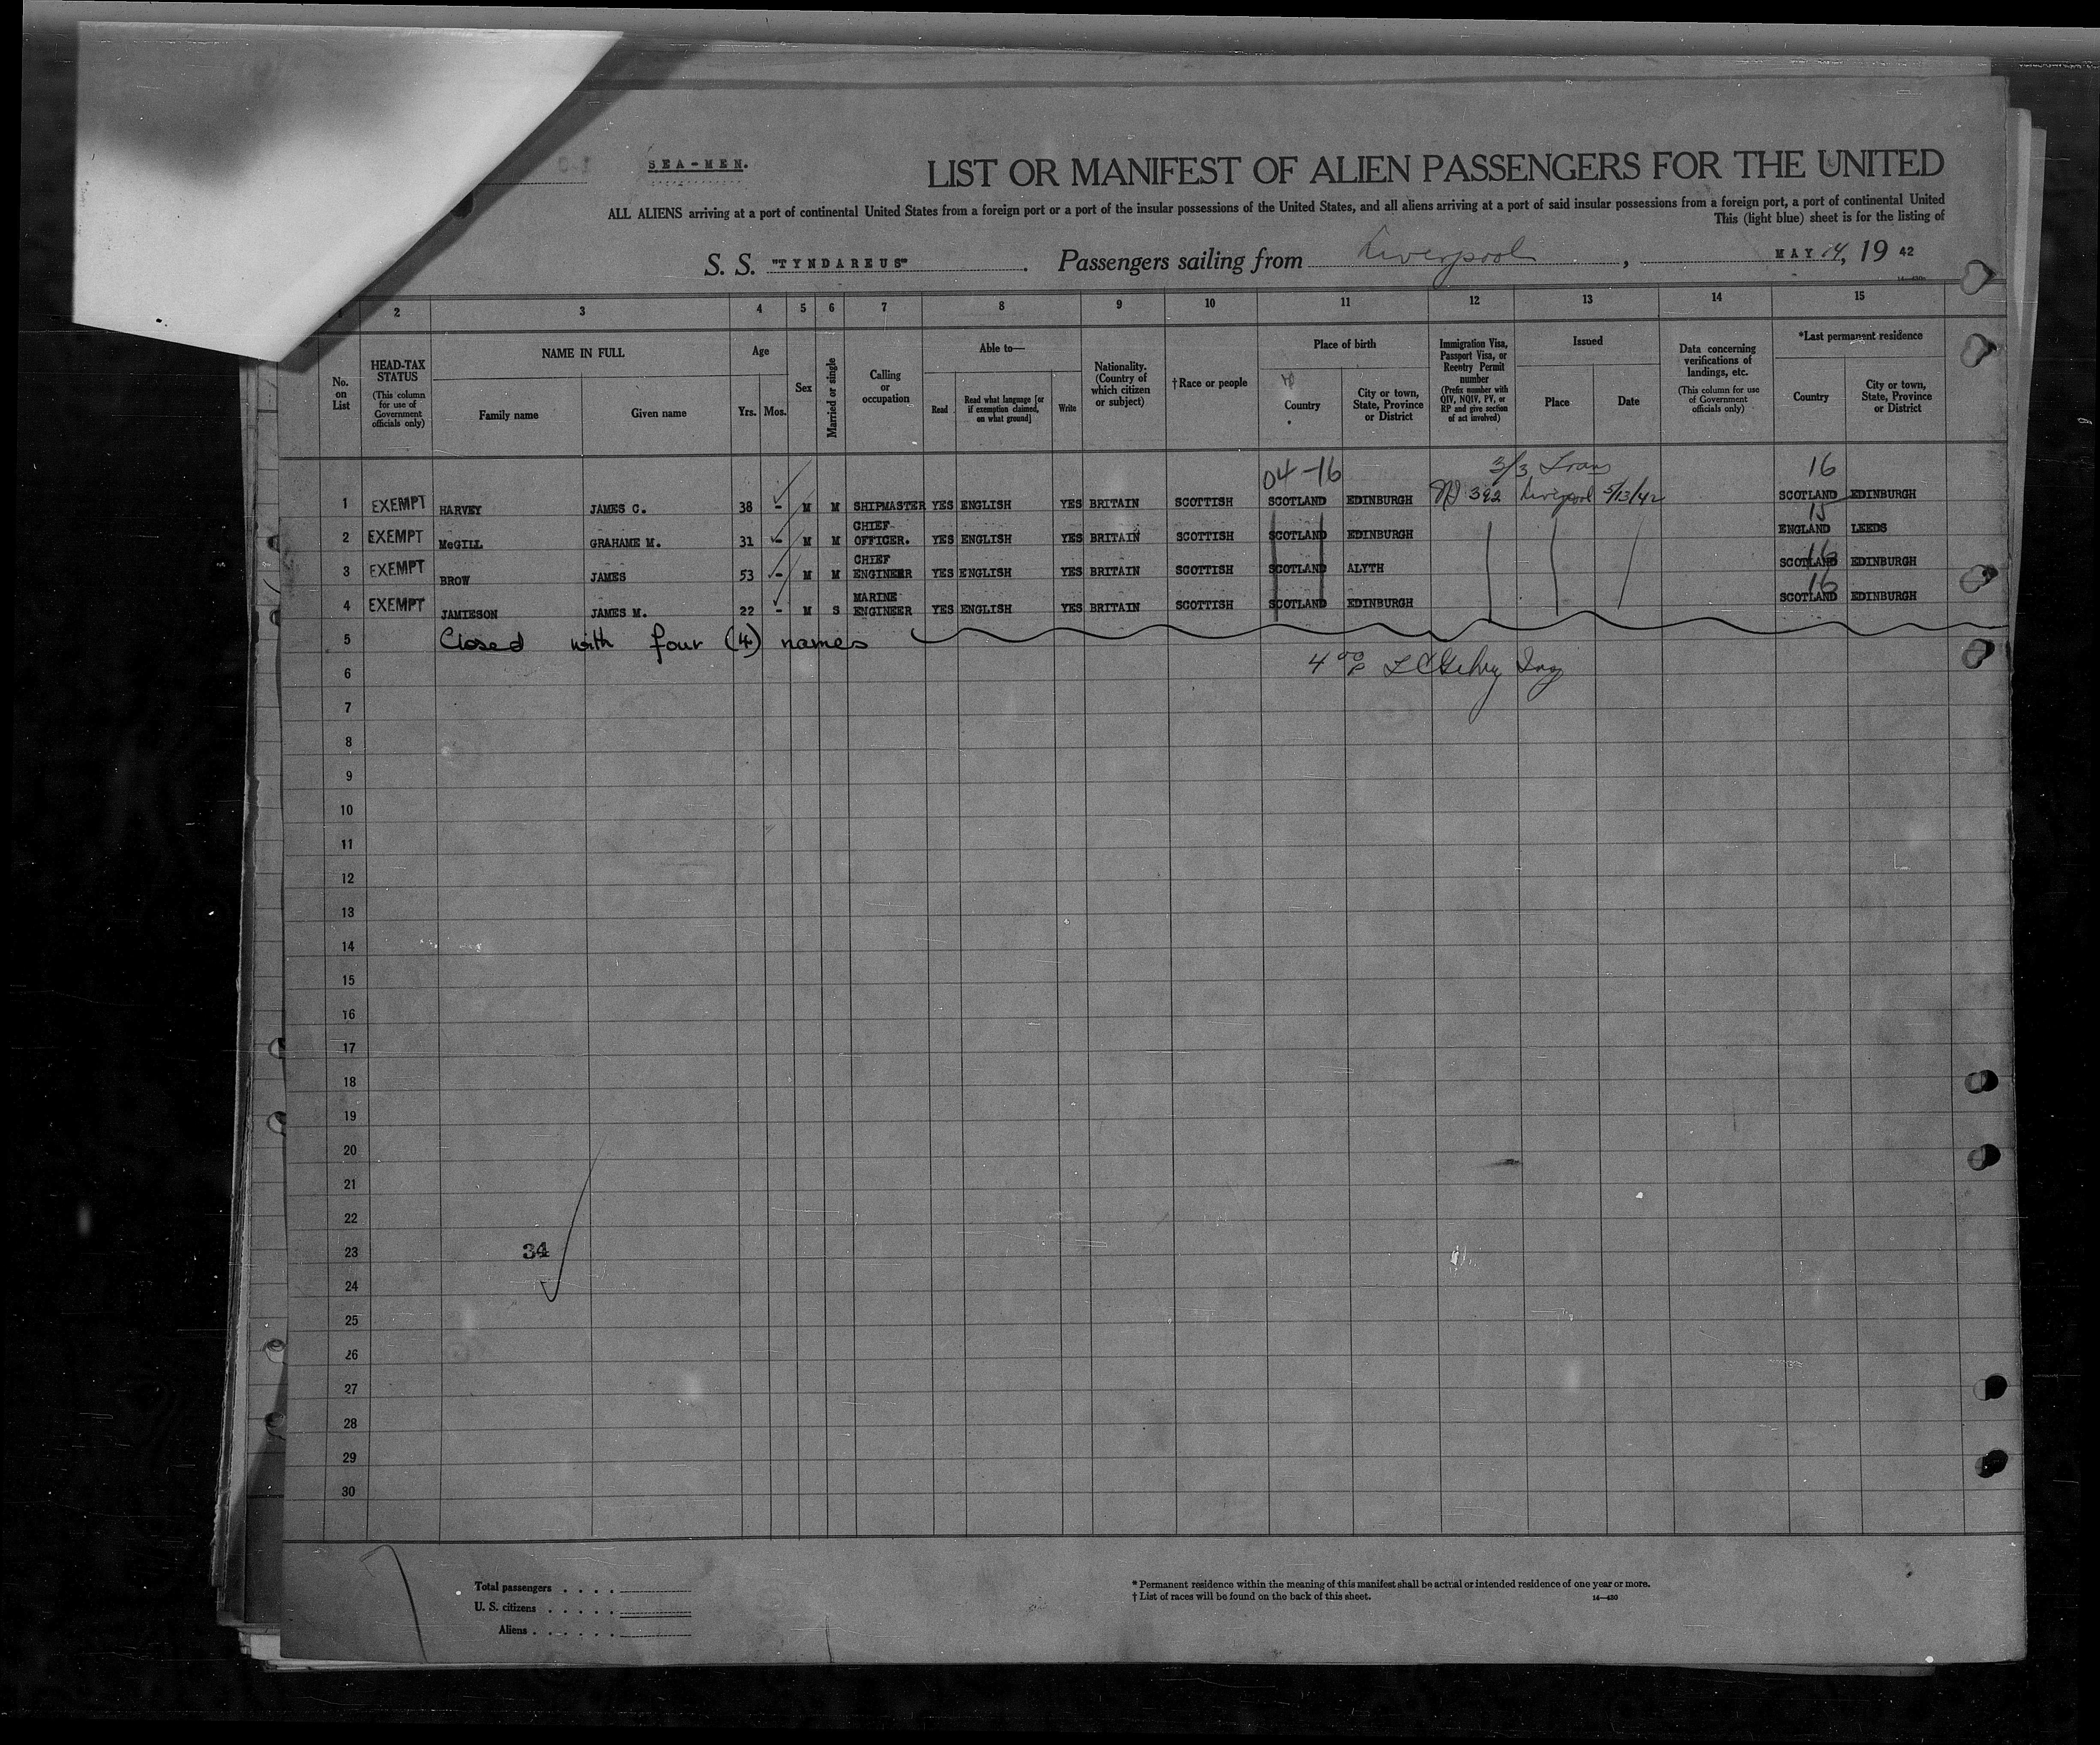 SEA-MEN.
LIST OR MANIFEST OF ALIEN PASSENGERS FOR THE UNITED
ALL ALIENS arriving at a port of continental United States from a foreign port or a port of the insular possessions of the United States, and all aliens arriving at a port of said insular possessions from a foreign port, a port of continental United
This (light blue) sheet is for the listing of
S. S. "TYNDAREUS". Passengers sailing from Liverpool, MAY 14, 19 42
2 3 4 5 6 7 8 9 10 11 12 13 14 15
No. on List
HEAD-TAX STATUS
(This column for use of Government officials only)
NAME IN FULL
Family name
Given name
Age
Yrs. Mos.
Sex
Married or single
Calling or occupation
Able to—
Read
Read what language [or if exemption claimed, on what ground]
Write
Nationality. (Country of which citizen or subject)
†Race or people
Place of birth
Country
City or town, State, Province or District
Immigration Visa, Passport Visa, or Reentry Permit number
(Prefix number with QIV, NQIV, PV, or RP and give section of act involved)
Issued
Place
Date
Data concerning verifications of landings, etc.
(This column for use of Government officials only)
*Last permanent residence
Country
City or town, State, Province or District
04-16 3/3 Trans 16
1 EXEMPT HARVEY JAMES C. 38 - M M SHIPMASTER YES ENGLISH YES BRITAIN SCOTTISH SCOTLAND EDINBURGH 392 Liverpool 5/13/42 SCOTLAND EDINBURGH
15
2 EXEMPT McGILL GRAHAME M. 31 - M M CHIEF OFFICER. YES ENGLISH YES BRITAIN SCOTTISH SCOTLAND EDINBURGH ENGLAND LEEDS
16
3 EXEMPT BROW JAMES 53 - M M CHIEF ENGINEER YES ENGLISH YES BRITAIN SCOTTISH SCOTLAND ALYTH SCOTLAND EDINBURGH
16
4 EXEMPT JAMIESON JAMES M. 22 - M S MARINE ENGINEER YES ENGLISH YES BRITAIN SCOTTISH SCOTLAND EDINBURGH SCOTLAND EDINBURGH
5 Closed with four (4) names
6
7
8
9
10
11
12
13
14
15
16
17
18
19
20
21
22
23 34
24
25
26
27
28
29
30
Total passengers . . . .
U. S. citizens . . . . .
Aliens . . . . . .
* Permanent residence within the meaning of this manifest shall be actual or intended residence of one year or more.
† List of races will be found on the back of this sheet. 14—430